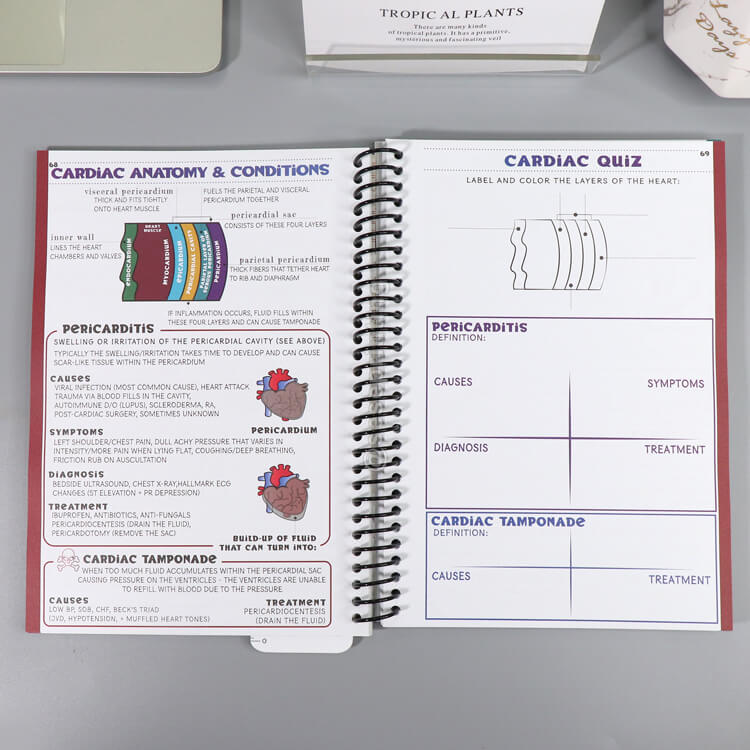 TROPICAL PLANTS
There are many kinds
of tropical plants. It has a primitive,
mysterious and fascinating veil
68
CARDIAC ANATOMY & CONDITIONS
visceral pericardium
THICK AND FITS TIGHTLY
ONTO HEART MUSCLE
FUELS THE PARIETAL AND VISCERAL
PERICARDIUM TOGETHER
pericardial sac
CONSISTS OF THESE FOUR LAYERS
inner wall
LINES THE HEART
CHAMBERS AND VALVES
HEART
MUSCLE
ENDOCARDIUM
MYOCARDIUM
EPICARDIUM
PERICARDIAL CAVITY
PARIETAL LAYER OF
SEROUS PERICARDIUM
PERICARDIUM
parietal pericardium
THICK FIBERS THAT TETHER HEART
TO RIB AND DIAPHRAGM
IF INFLAMMATION OCCURS, FLUID FILLS WITHIN
THESE FOUR LAYERS AND CAN CAUSE TAMPONADE
PERICARDITIS
SWELLING OR IRRITATION OF THE PERICARDIAL CAVITY (SEE ABOVE)
TYPICALLY THE SWELLING/IRRITATION TAKES TIME TO DEVELOP AND CAN CAUSE
SCAR-LIKE TISSUE WITHIN THE PERICARDIUM
CAUSES
VIRAL INFECTION (MOST COMMON CAUSE), HEART ATTACK
TRAUMA VIA BLOOD FILLS IN THE CAVITY,
AUTOIMMUNE D/O (LUPUS), SCLERODERMA, RA,
POST-CARDIAC SURGERY, SOMETIMES UNKNOWN
SYMPTOMS
LEFT SHOULDER/CHEST PAIN, DULL ACHY PRESSURE THAT VARIES IN
INTENSITY/MORE PAIN WHEN LYING FLAT, COUGHING/DEEP BREATHING,
FRICTION RUB ON AUSCULTATION
PERICARDIUM
DIAGNOSIS
BEDSIDE ULTRASOUND, CHEST X-RAY,HALLMARK ECG
CHANGES (ST ELEVATION + PR DEPRESSION)
TREATMENT
IBUPROFEN, ANTIBIOTICS, ANTI-FUNGALS
PERICARDIOCENTESIS (DRAIN THE FLUID),
PERICARDOTOMY (REMOVE THE SAC)
BUILD-UP OF FLUID
THAT CAN TURN INTO:
CARDIAC TAMPONADE
WHEN TOO MUCH FLUID ACCUMULATES WITHIN THE PERICARDIAL SAC
CAUSING PRESSURE ON THE VENTRICLES - THE VENTRICLES ARE UNABLE
TO REFILL WITH BLOOD DUE TO THE PRESSURE.
CAUSES
LOW BP, SOB, CHF, BECK'S TRIAD
(JVD, HYPOTENSION, + MUFFLED HEART TONES)
TREATMENT
PERICARDIOCENTESIS
(DRAIN THE FLUID)
69
CARDIAC QUIZ
LABEL AND COLOR THE LAYERS OF THE HEART:
PERICARDITIS
DEFINITION:
CAUSES
SYMPTOMS
DIAGNOSIS
TREATMENT
CARDIAC TAMPONADE
DEFINITION:
CAUSES
TREATMENT